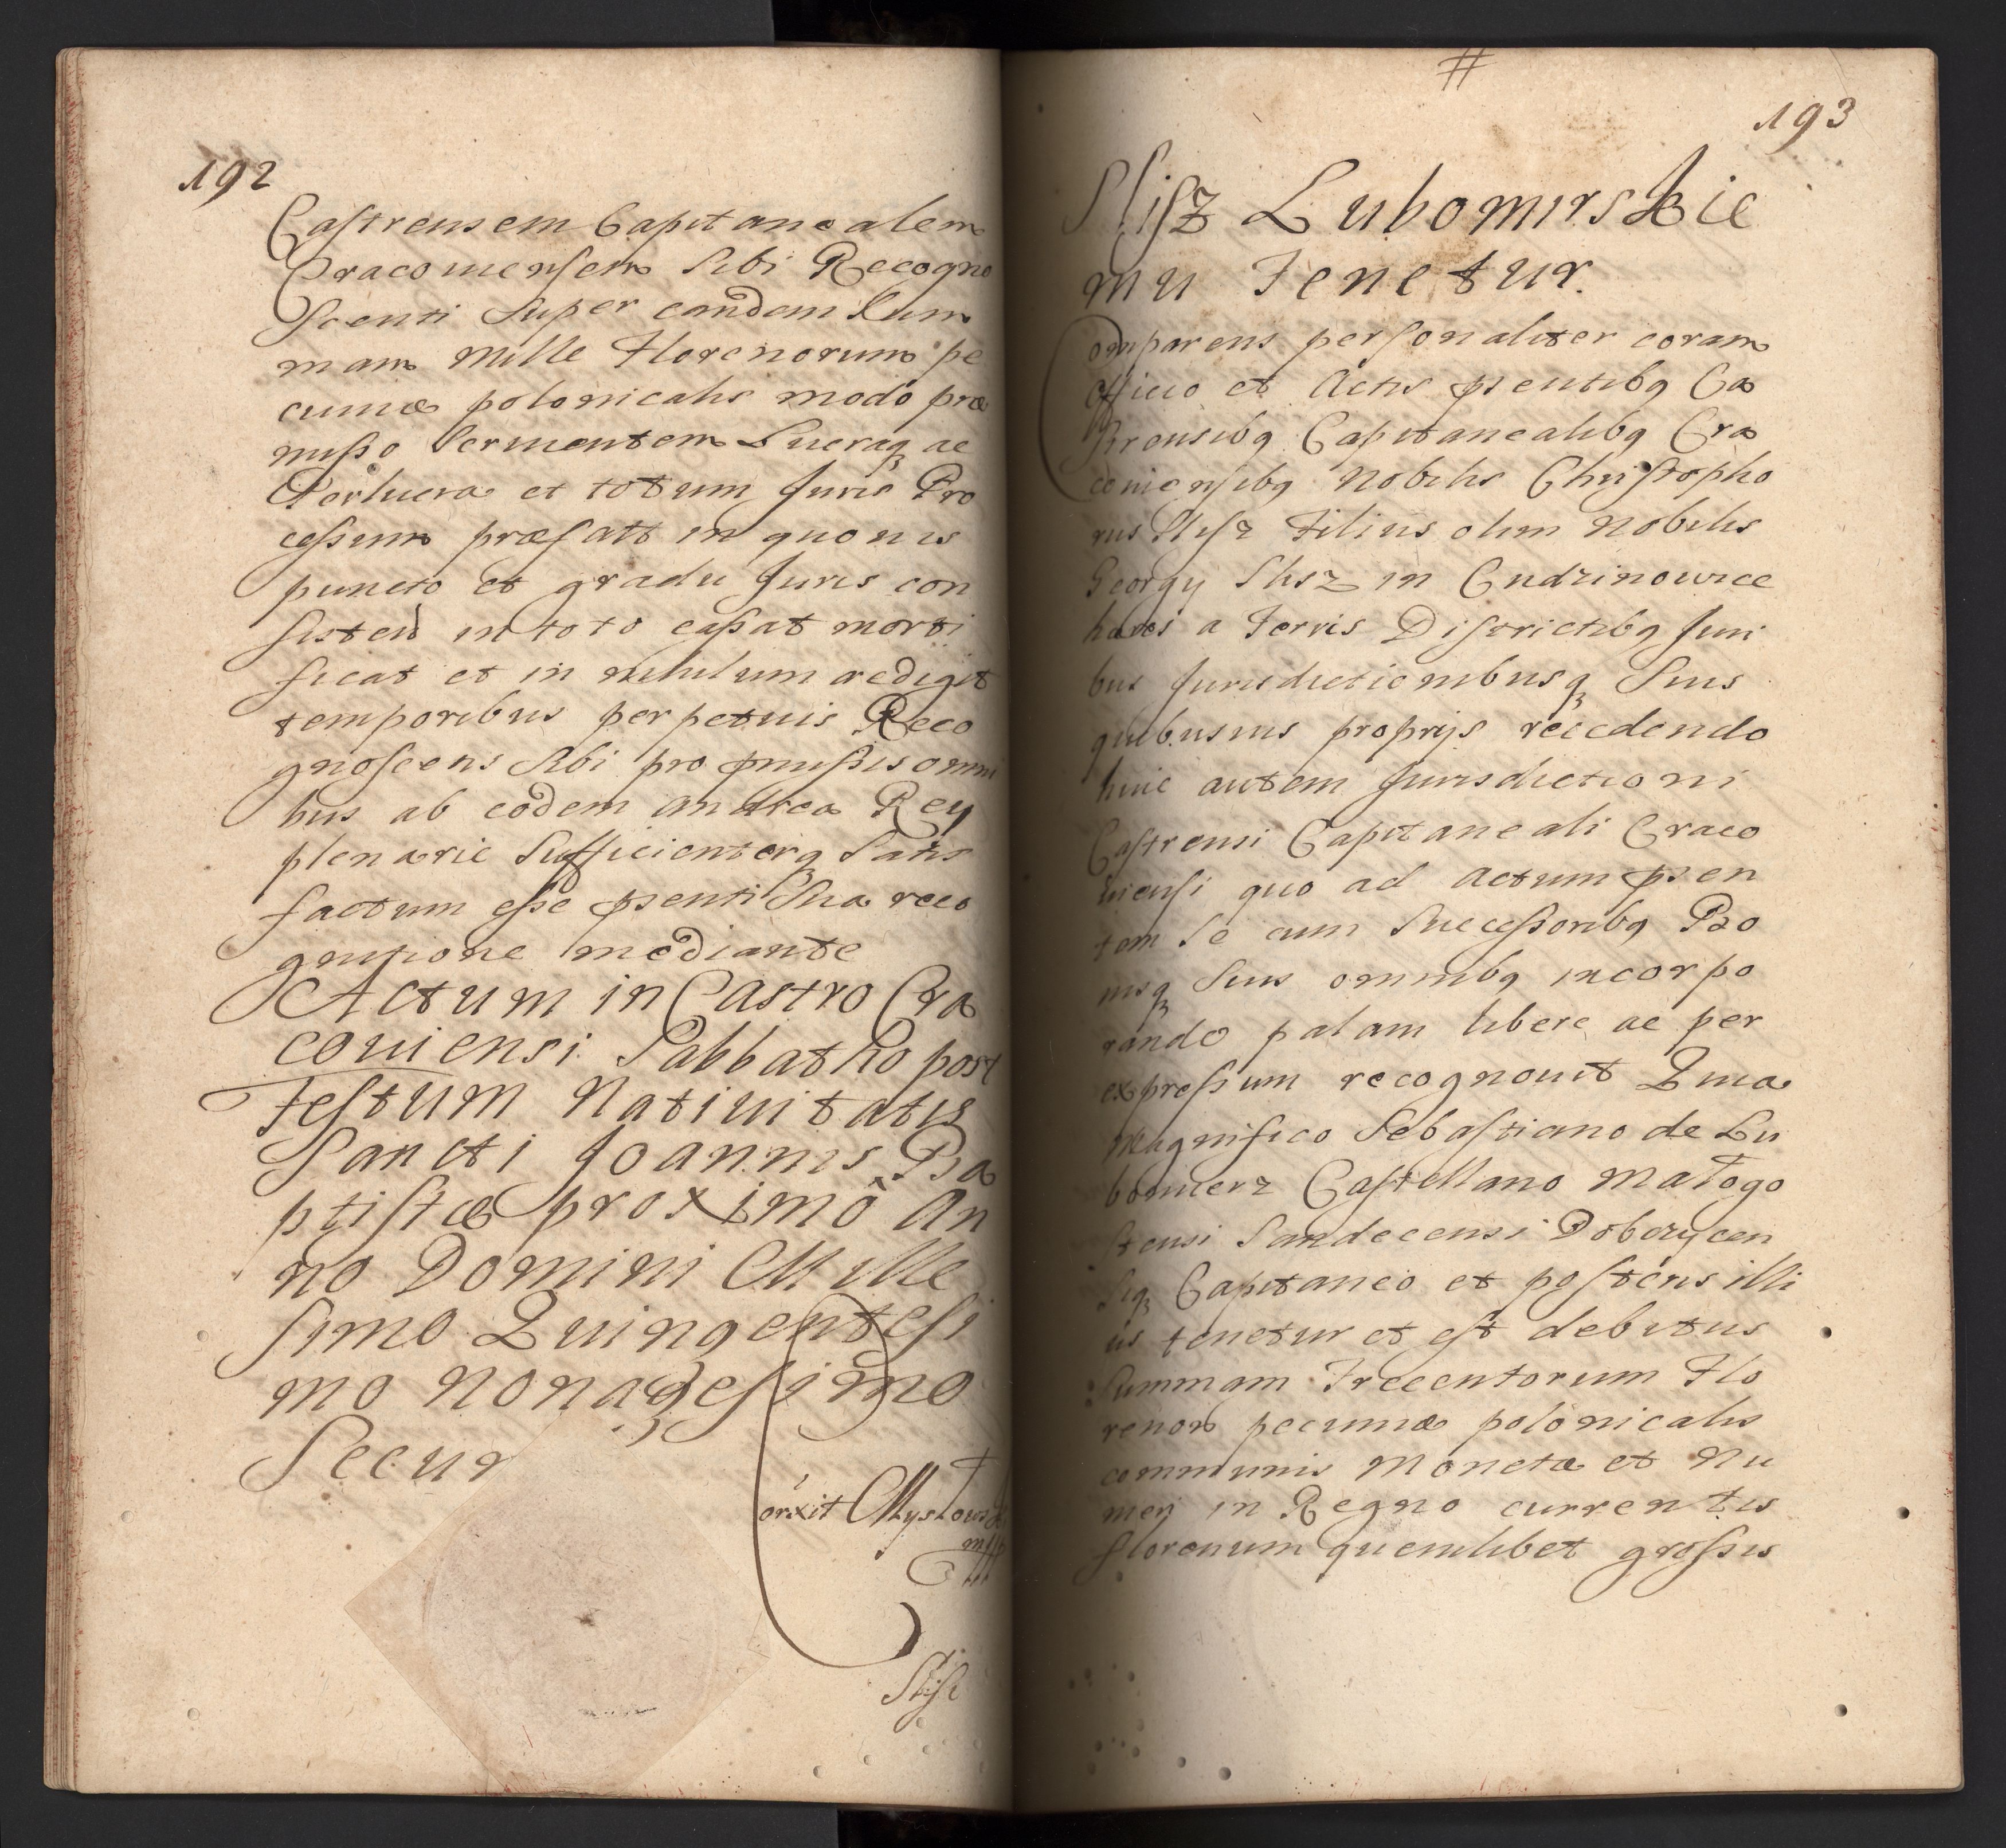 192
Castrensem Capitanealem
Cracouiensem Sibi Recogno
scenti Super eandem Sum
mam Mille Florenorum pe
cuniæ polonicalis modo præ
misso Seruientem Lucraq3 ac
Perlucra et totum Juris Pro
cessum præfatt in quouis
puncto et gradu Juris con
sisteñ in toto cassat morti
ficat et in nihilum redigit
temporibus perpetuis Reco
gnoscens Sibi pro pmissis omni
bus ab eodem Andrea Rey
plenarie Sufficienterq3 Satis
factum esse psenti Sua reco
gnitione mediante
Actum in Castro Cra
couiensi Sabbatho post
Festum Natiuitatis
Sancti Joannis Ba
ptistæ proximo An
no Domini Mille
simo Quingentesi
mo Nonagesimo
Secun
193
Slisz Lubomirskie
mu Tenetur.
Comparens personaliter coram
Officio et Actis psentibq Ca
strensibq Capitanealibq Cra
couiensibq Nobilis Christopho
rus Slisz Filius olim Nobilis
Georgy Slisz in Cudzinowice
hæres a Terris Districtibq Juri
bus Jurisdictionibusq3 Suis
quibusuis proprijs recedendo
huic autem Jurisdictioni
Castrensi Capitaneali Craco
uiensi quo ad Actum psen
tem Se cum Successoribq Bo
nisq3 Suis omnibq incorpo
rando palam libere ac per
expressum recognouit Quia
Magnifico Sebastiano de Lu
bomierz Castellano Małogo
stensi Sandecensi Dobczycen
siq3 Capitaneo et posteris illi
us tenetur et est debitus
Summam Trecentorum Flo
renor pecuniæ polonicalis
communis Monetæ et Nu
meri in Regno currentis
florenum quemlibet grossis